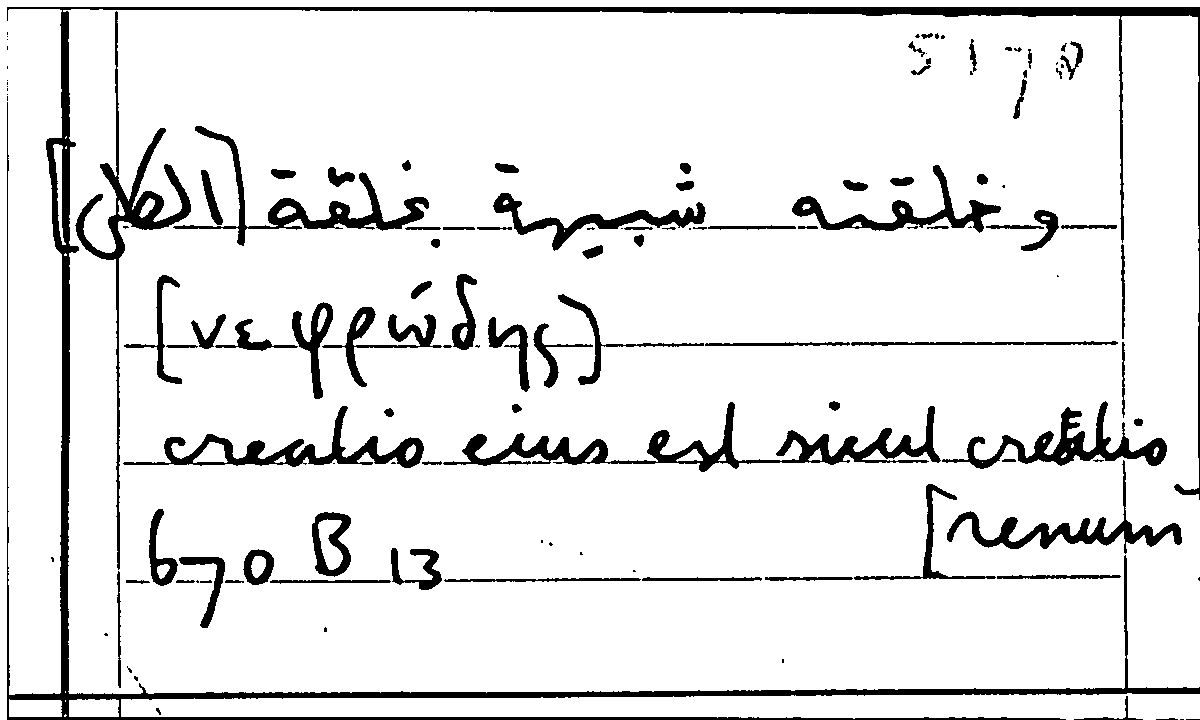 5170
وخلقته شبيهة بخلقة [الكلى]
[νεφρώδης]
creatio eius est sicut creatio
[renum
670 B 13